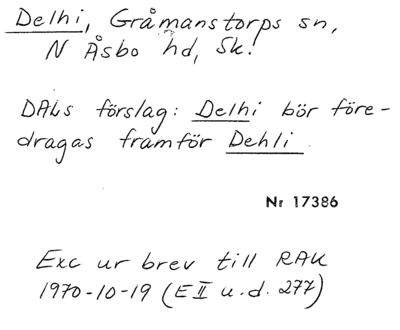 Delhi, Gråmanstorps sn,
N Åsbo hd, Sk.
DALs förslag: Delhi bör före-
dragas framför Dehli.
Nr 17386
Exc ur brev till RAK
1970-10-19 (E II u.d. 277)